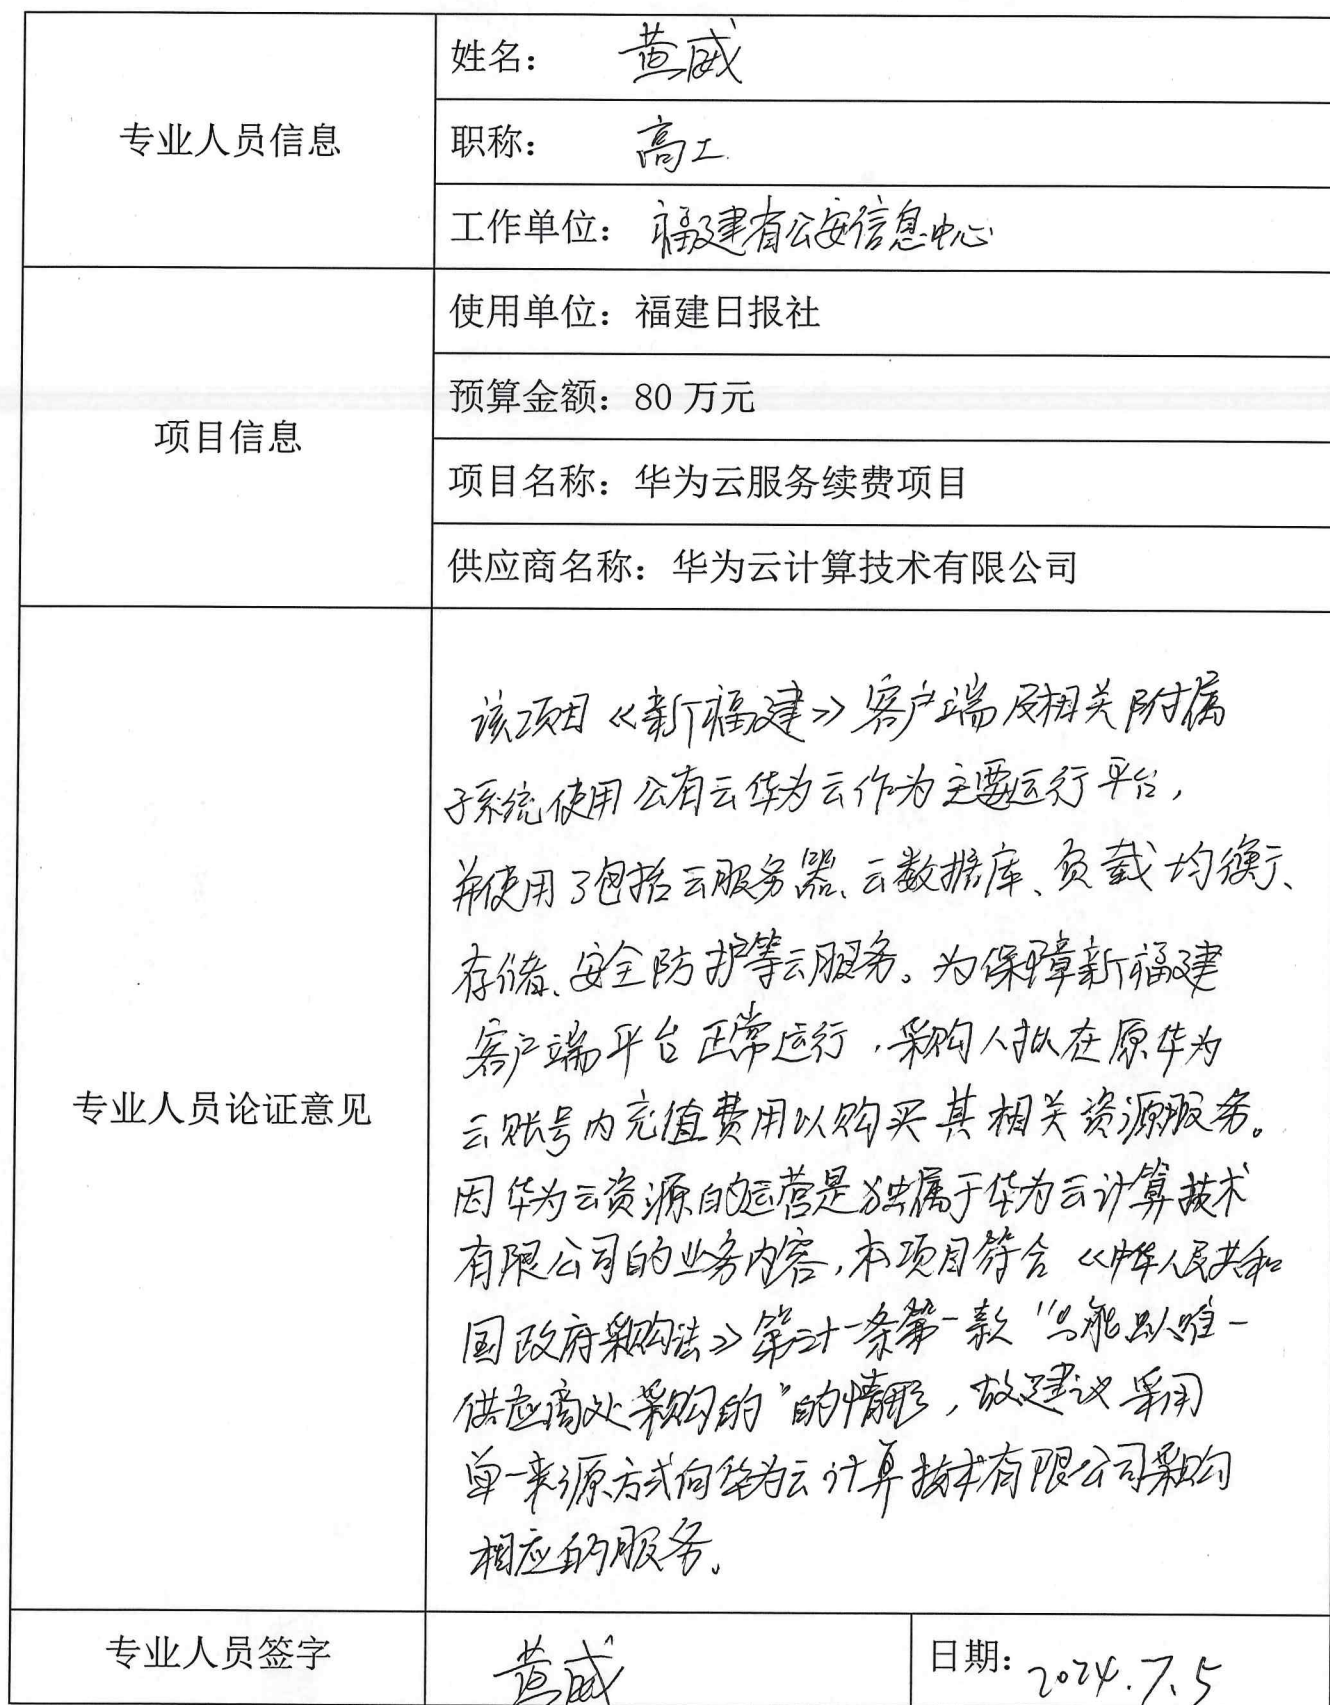 专业人员信息
姓名： 黄威
职称： 高工
工作单位： 福建省公安信息中心
项目信息
使用单位：福建日报社
预算金额：80 万元
项目名称：华为云服务续费项目
供应商名称：华为云计算技术有限公司
专业人员论证意见
该项目《新福建》客户端及相关附属
子系统使用公有云华为云作为主要运行平台，
并使用了包括云服务器、云数据库、负载均衡、
存储、安全防护等云服务。为保障新福建
客户端平台正常运行，采购人拟在原华为
云账号内充值费用以购买其相关资源服务。
因华为云资源的运营是独属于华为云计算技术
有限公司的业务内容，本项目符合《中华人民共和
国政府采购法》第三十一条第一款“只能从唯一
供应商处采购的”的情形，故建议采用
单一来源方式向华为云计算技术有限公司采购
相应的服务。
专业人员签字
黄威
日期：2024.7.5